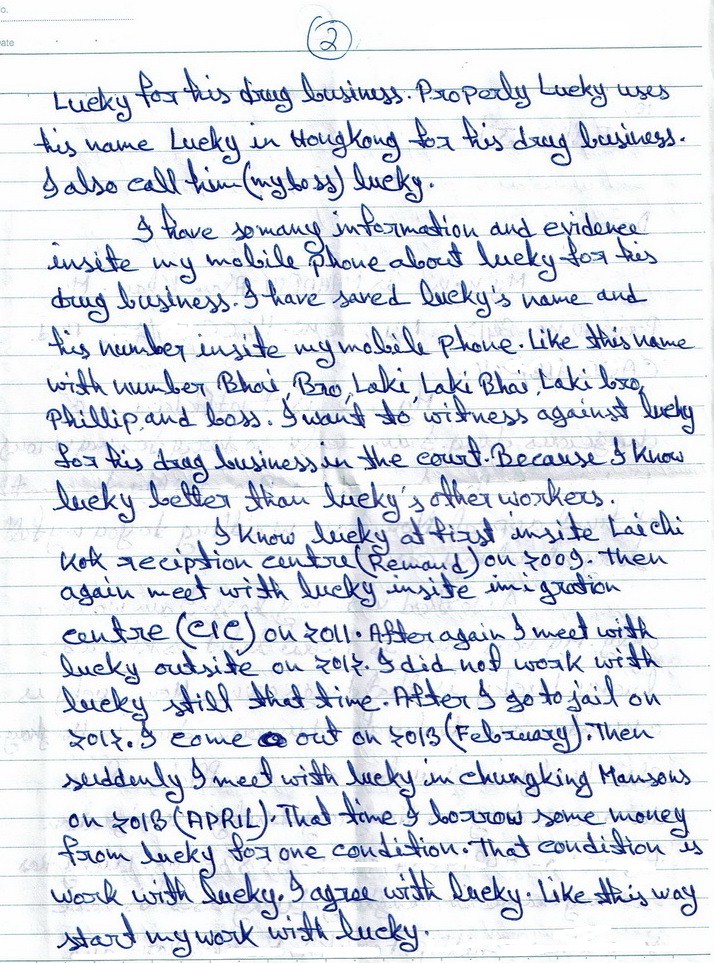 o.
ate
2
Lucky for his drug business. Properly Lucky uses
his name Lucky in Hongkong for his drug business.
I also call him (my boss) lucky.
I have somany information and evidence
insite my mobile phone about lucky for his
drug business. I have saved lucky's name and
his number insite my mobile phone. Like this name
with number, Bhai, Bro, Laki, Laki Bhai, Laki bro,
Phillip, and boss. I want to witness against lucky
for his drug business in the court. Because I know
lucky better than lucky's other workers.
I know lucky at first insite Lai chi
Kok reciption centre (Remand) on 2009. Then
again meet with lucky insite imigration
centre (CIC) on 2011. After again I meet with
lucky outsite on 2012. I did not work with
lucky still that time. After I go to jail on
2012. I come out on 2013 (February). Then
suddenly I meet with lucky in chungking Mansons
on 2013 (APRIL). That time I borrow some money
from lucky for one condition. That condition is
work with lucky. I agree with lucky. Like this way
start my work with lucky.